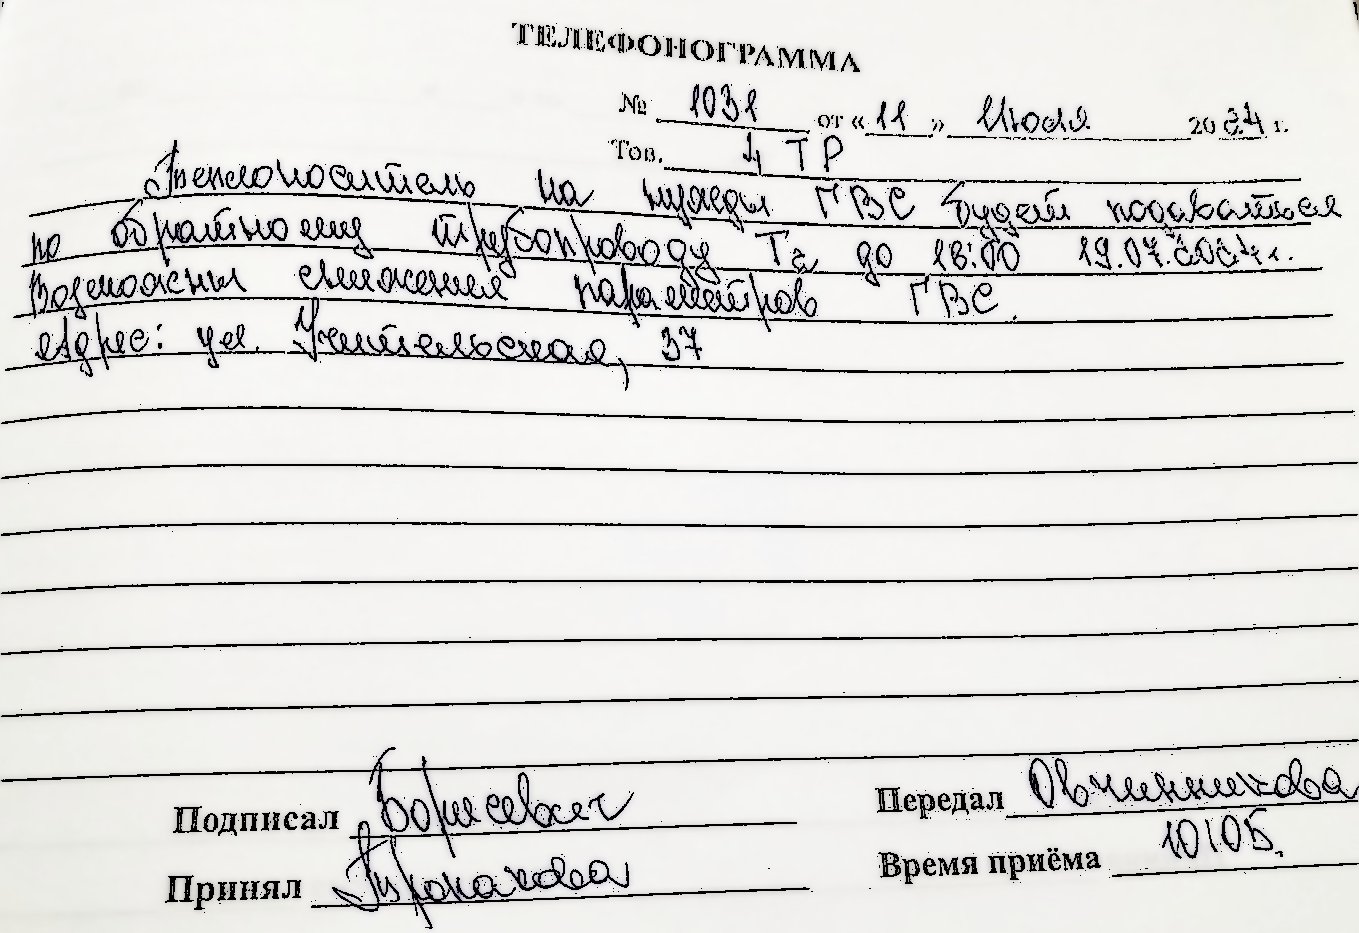 ТЕЛЕФОНОГРАММА
№ 1031 от « 11 » Июля 2024 г.
Тов. 4 ТР
Теплоноситель на нужды ГВС будет подаваться
по обратному трубопроводу Т2 до 18:00 19.07.2024г.
Возможны снижения параметров ГВС.
Адрес: ул. Учительская, 37
Подписал Борисевич Передал Овчинникова
Принял Время приёма 10:05.